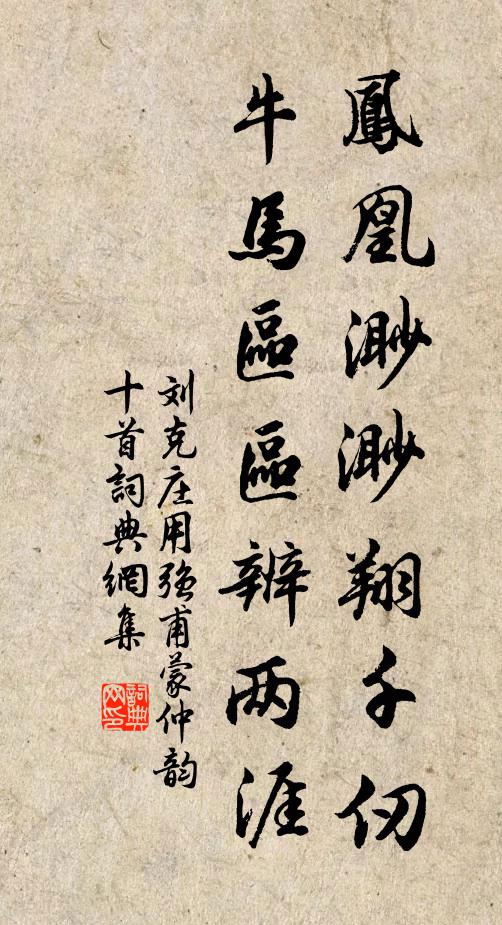 鳳凰渺渺翔千仞
牛馬區區辨两涯
刘克庄用强甫蒙仲韵
十首詞典網集
詞典网印